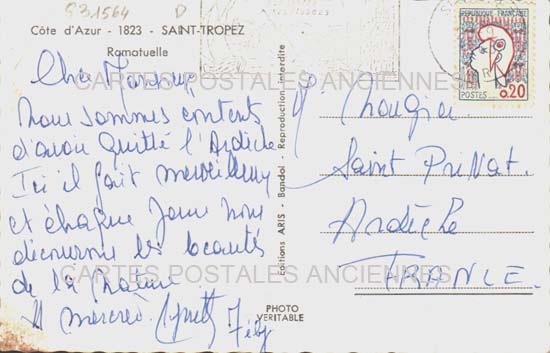 931564 D
Côte d'Azur - 1823 - SAINT-TROPEZ
Ramatuelle
REPUBLIQUE FRANÇAISE
POSTES 0,20
CARTES POSTALES ANCIENNES
nous sommes contents
d'avoir quitté l'Ardèche
Ici il fait merveilleux
et chaque jour nous
découvrons les beautés
de la nature
mercredi
Editions ARIS - Bandol - Reproduction interdite
PHOTO
VERITABLE
Saint Privat
Ardèche
FRANCE.
CARTES POSTALES ANCIENNES